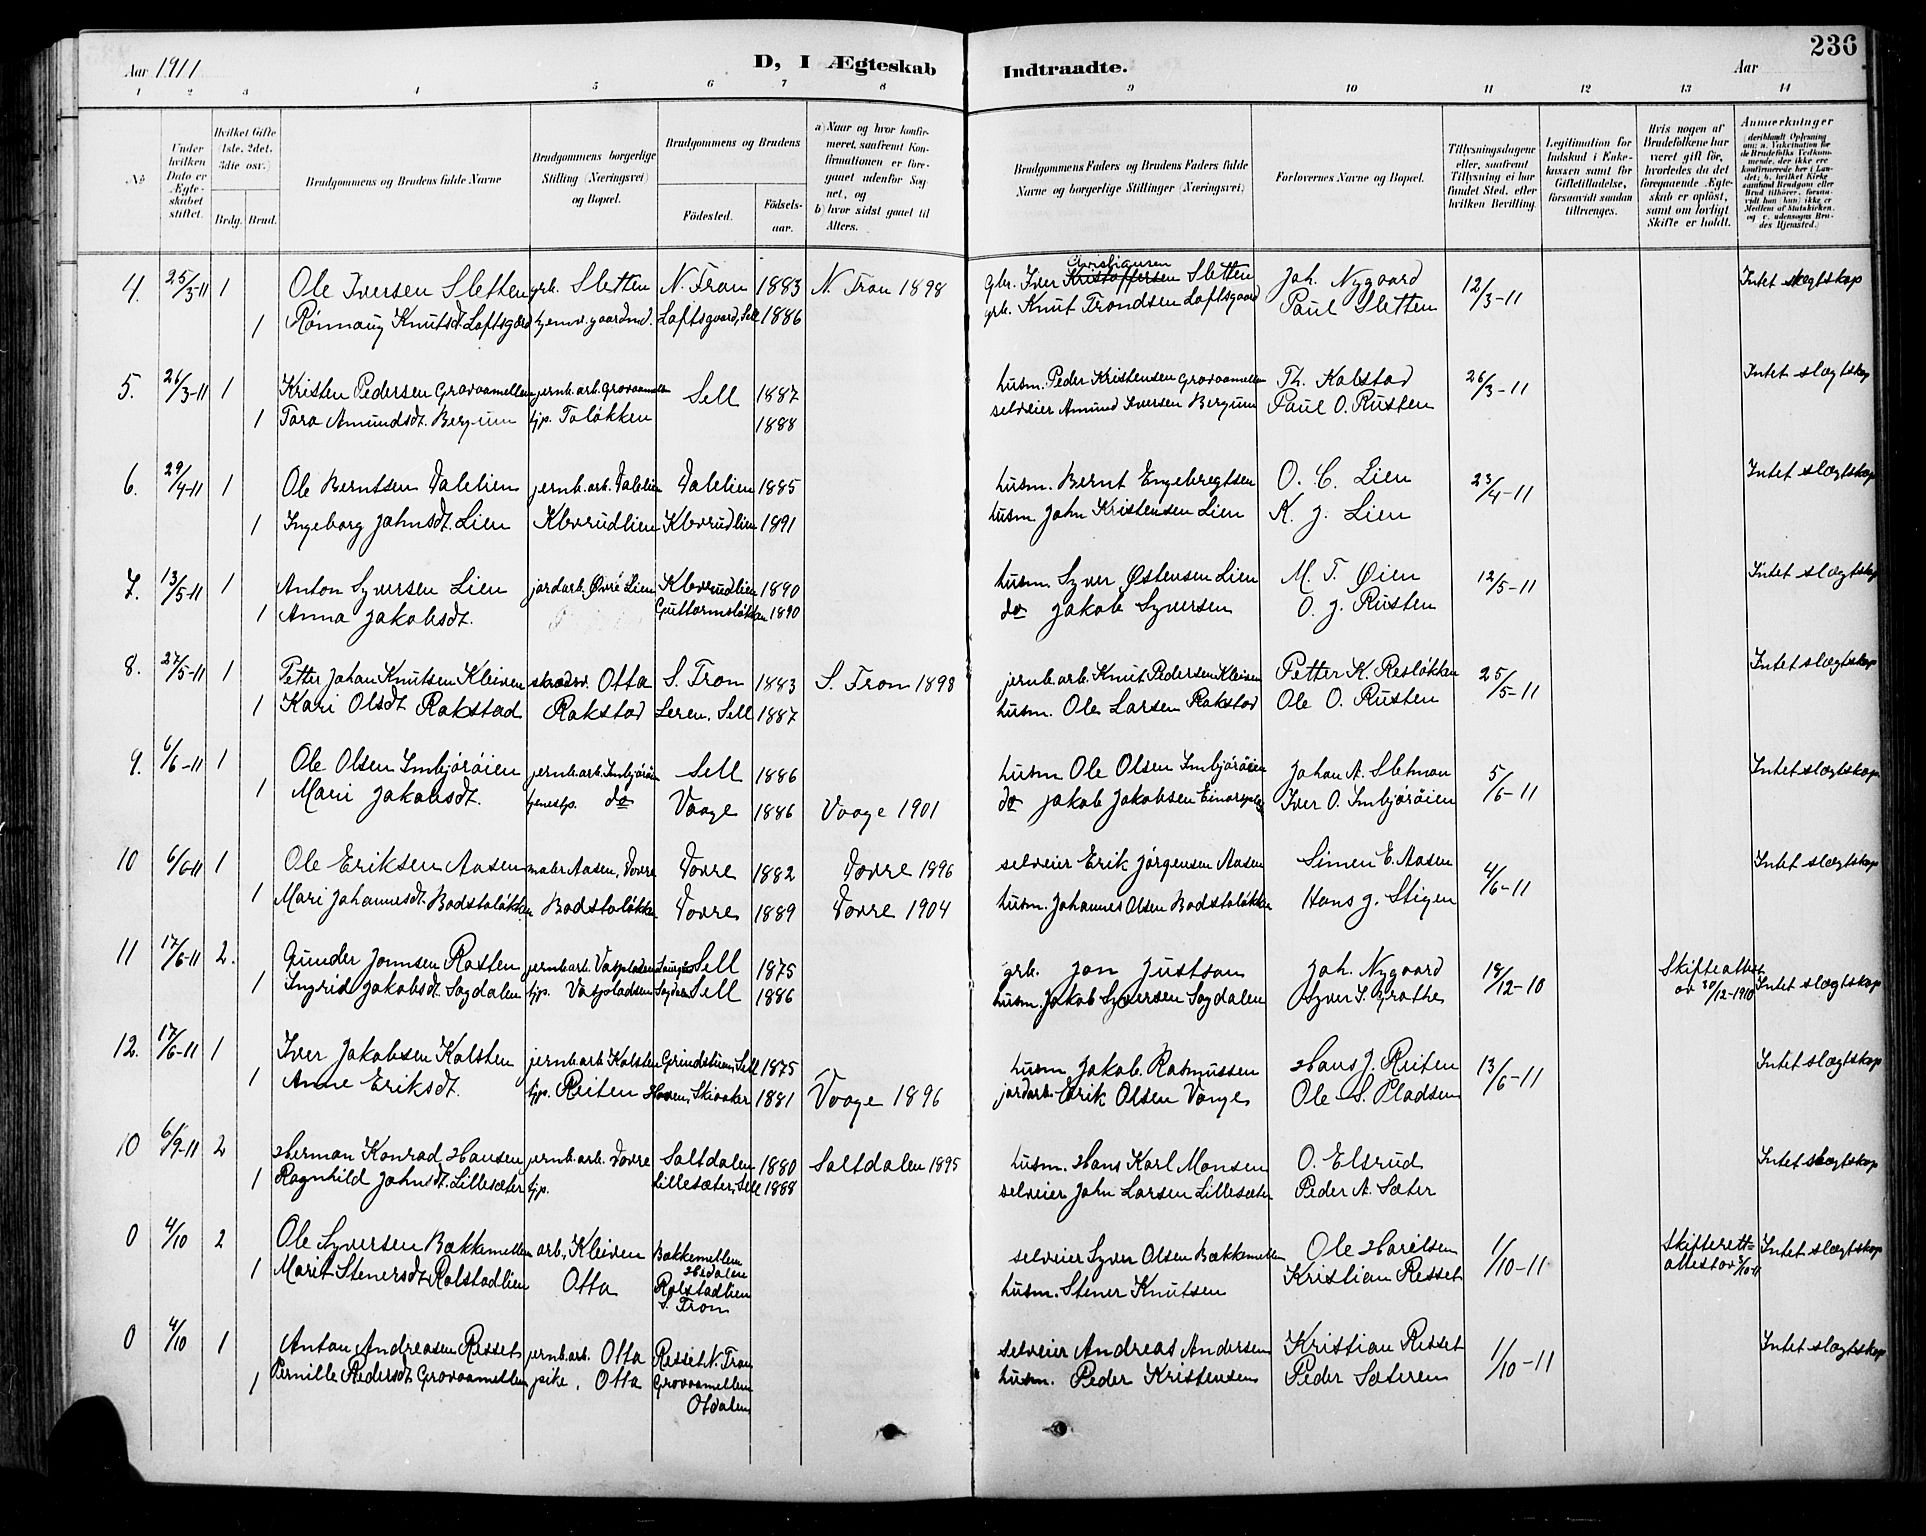 236
Aar 1911
D, I Ægteskab Indtraadte.
Aar
1 2 3 4 5 6 7 8 9 10 11 12 13 14
No
Under hvilken Dato er Ægteskabet stiftet.
Hvilket Gifte (1ste. 2det. 3die osv.)
Brdg. Brud.
Brudgommens og Brudens fulde Navne
Brudgommens borgerlige Stilling (Næringsvei) og Bopæl.
Brudgommens og Brudens
Födested.
Födselsaar.
a) Naar og hvor konfirmeret, saafremt Konfirmationen er foregaaet udenfor Sognet, og
b) hvor sidst gaaet til Alters.
Brudgommens Faders og Brudens Faders fulde Navne og borgerlige Stillinger (Næringsvei)
Forlovernes Navne og Bopæl.
Tillysningsdagene eller, saafremt Tillysning ei har fundet Sted, efter hvilken Bevilling.
Legitimation for Indskud i Enkekassen samt for Giftetilladelse, forsaavidt saadan tiltrænges.
Hvis nogen af Brudefolkene har været gift før, hvorledes da det foregaaende Ægteskab er opløst, samt om lovligt Skifte er holdt.
Anmerkninger (deriblandt Oplysning om: a. Vakcination for de Brudefolks Vedkommende, der ikke ere konfirmerede her i Landet; b. hvilket Kirkesamfund Brudgom eller Brud tilhører, forsaavidt han (hun) ikke er Medlem af Statskirken, og c. udensogns Brudes Hjemsted.)
4. 25/3-11 1 Ole Iversen Sletten grb. Sletten N. Fron 1883 N. Fron 1898 gbr. Iver Kristoffersen Christiansen Sletten Joh. Nygaard 12/3-11 Intet slægtskap
1 Rønnaug Knutsdt. Loftsgård tjener gaardmd. Loftsgaard, Sell 1886 grb. Knut Trondsen Loftsgaard Paul Sletten
5. 26/3-11 1 Kristen Pedersen Grovaamellen jernb.arb. Grovaamellen Sell 1887 husm. Peder Kristensen Grovaamellen Th. Kolstad 26/3-11 Intet slægtskap
1 Tora Amundsdt. Bergum tjp. Toløkken 1888 selveier Amund Iversen Bergum Paul O. Rusten
6. 29/4-11 1 Ole Berntsen Dalelien jernb.arb. Dalelien Dalelien 1885 husm. Bernt Engebregtsen O. C. Lien 23/4-11 Intet slægtskap
1 Ingeborg Johnsdt. Lien Klevrudlien Klevrudlien 1891 husm. John Kristensen Lien K. J. Lien
7. 13/5-11 1 Anton Syversen Lien jordarb. Øvre Lien Klevrudlien 1890 husm. Syver Østensen Lien M. T. Øien 12/5-11 Intet slægtskap
1 Anna Jakobsdt. Guttormsløkken 1890 do Jakob Syversen O. J. Rusten
8. 27/5-11 1 Petter Johan Knutsen Kleiven skrædd. Otta S. Fron 1883 S. Fron 1898 jernb.arb. Knut Pedersen Kleiven Petter K. Resløkken 25/5-11 Intet slægtskap
1 Kari Olsdt Rakstad Rakstad Leren, Sell 1887 husm. Ole Larsen Rakstad Ole O. Rusten
9. 6/6-11 1 Ole Olsen Imbjørøien jernb.arb. Imbjørøien Sell 1886 husm Ole Olsen Imbjørøien Johan A. Sletmon 5/6-11 Intet slægtskap
1 Mari Jakobsdt. tjenestp. do Vaage 1886 Vaage 1901 do Jakob Jakobsen Iver O. Imbjørøien
10 6/6-11 1 Ole Eriksen Aasen maler Aasen, Dovre Dovre 1882 Dovre 1896 selveier Erik Jørgensen Aasen Simen E. Aasen 4/6-11 Intet slægtskap
1 Mari Johannesdt. Badstoløkken Badstoløkken Dovre 1889 Dovre 1904 husm. Johannes Olsen Badstoløkken Hans J. Stigen
11 17/6-11 2. Gunder Jonnsen Rosten jernb.arb. Vaspladsen Sell 1875 grb. Jon Justson Joh. Nygaard 18/12-10 Skifteattest av 30/12-1910 Intet slægtskap
1 Ingrid Jakobsdt. Sogdalen tjp. Vaspladsen Sogdalen Sell 1886 husm. Jakob Syversen Sogdalen Syver S. Grothe
12. 17/6-11 1 Iver Jakobsen Kolsten jernb.arb Kolsten Grindstuen, Sell 1875 husm Jakob Rasmussen Hans J. Reiten 13/6-11 Intet slægtskap
1 Anne Eriksdt. tjp. Reiten Hoven, Skiaaker 1881 Vaage 1896 jordarb. Erik Olsen Vange Ole S. Pladsen
10 6/9-11 2 Herman Konrad Hansen jernb.arb. Dovre Saltdalen 1880 Saltdalen 1895 husm. Hans Karl Monsen O. Elsrud Intet slægtskap
1 Ragnhild Johnsdt. Lillesæter tjp. Lillesæter, Sell 1888 selveier John Larsen Lillesæter Peder A. Sæter
0 4/10 2 Ole Syversen Bækkemellen arb. Kleiven Bækkemellen Hedalen selveier Syver Olsen Bækkemellen Ole Harilsen 1/10-11 Skifterettattest av 3/10-11 Intet slægtskap
1 Marit Stenersdt. Rolstadlien Otta Rolstadlien S. Fron husm. Stener Knutsen Kristian Resset
0 4/10 1 Anton Andreasen Resset jernb.arb. Otta Resset N. Fron selveier Andreas Andersen Kristian Resset 1/10-11 Intet slægtskap
1 Pernille Pedersdt Grovaamellen pike, Otta Grovaamellen Otdalen husm. Peder Kristensen Peder Sæteren